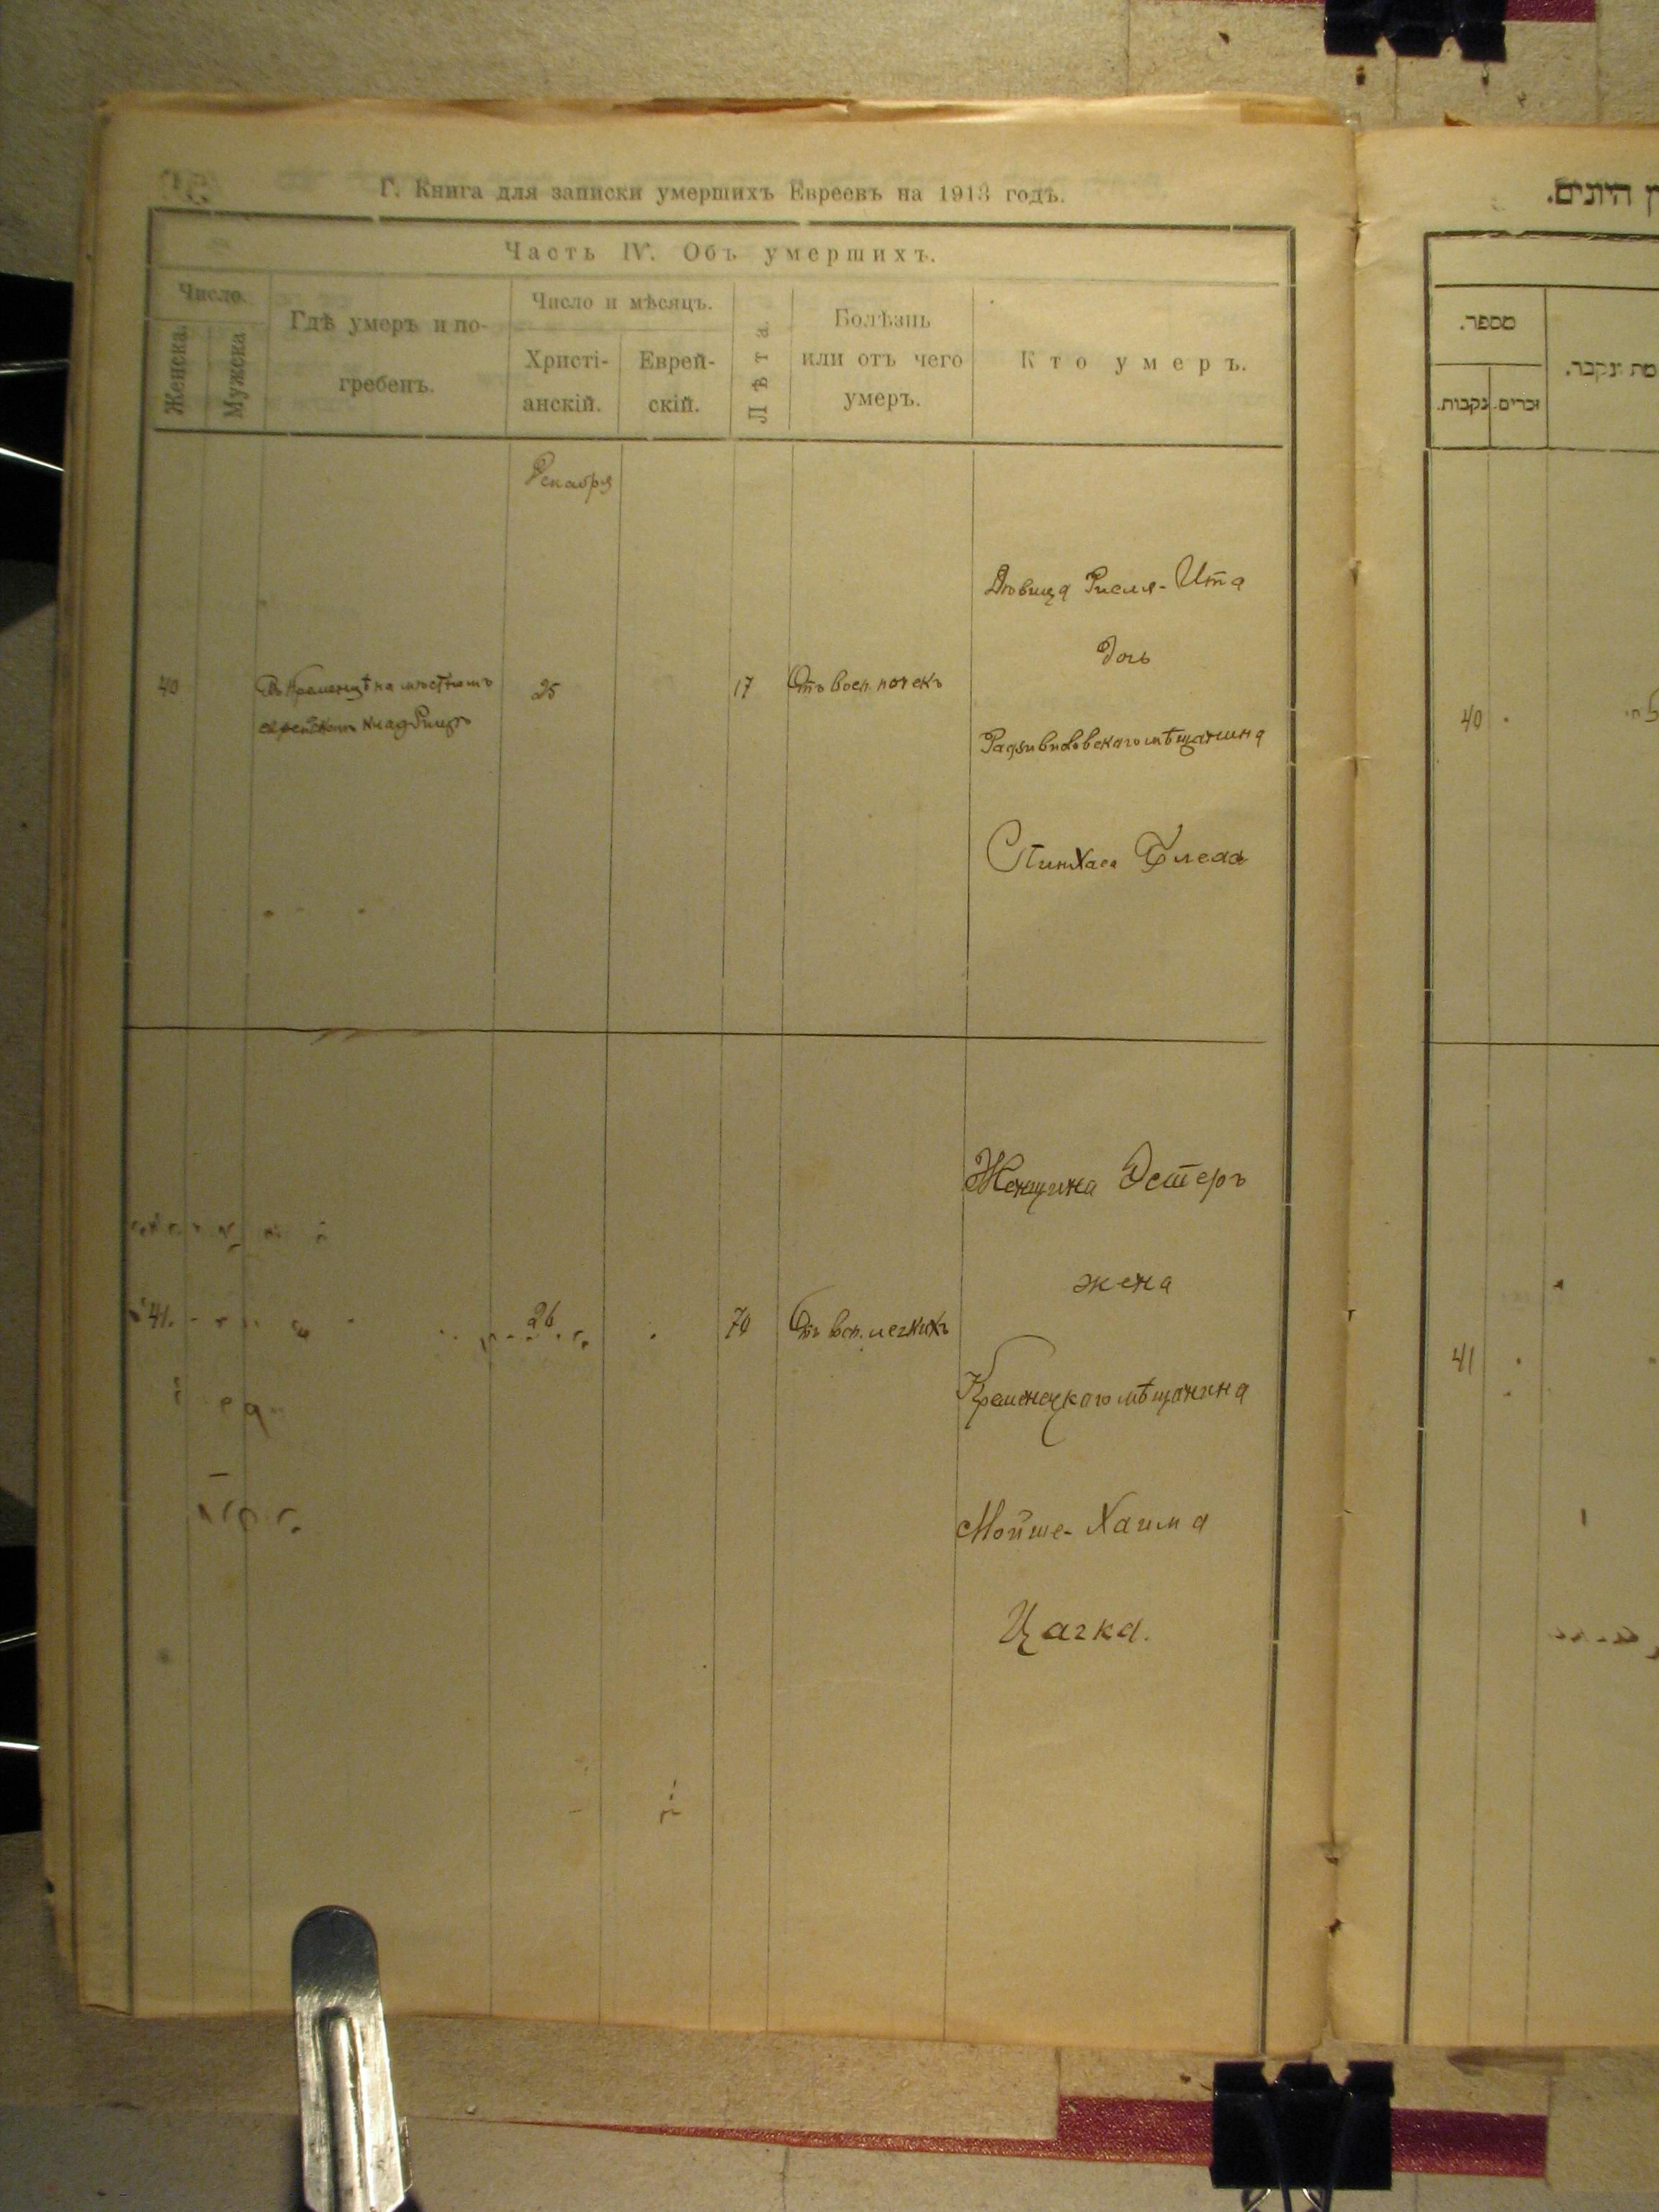 Г. Книга для записки умершихъ Евреевъ на 1913 годъ.
Часть IV. Объ умершихъ.
Число.
Женска.
Мужска
Гдѣ умеръ и по-
гребенъ.
Число и мѣсяцъ.
Христі-
анскій.
Еврей-
скій.
Лѣта.
Болѣзнь
или отъ чего
умеръ.
Кто умеръ.
Декабря
40
Въ Кременцѣ на мѣстномъ
еврейскомъ кладбищѣ
25
17
Отъ восп. почекъ
Дѣвица Рися-Ита
дочь
Радзивиловскаго мѣщанина
Пинхаса
41.
26
70
Отъ восп. легкихъ
Женщина Эстеръ
жена
Кременецкаго мѣщанина
Мойше-Хаима
Цачка.
ן היונים.
מספר.
נקבות.
זכרים.
מת ונקבר.
40
41